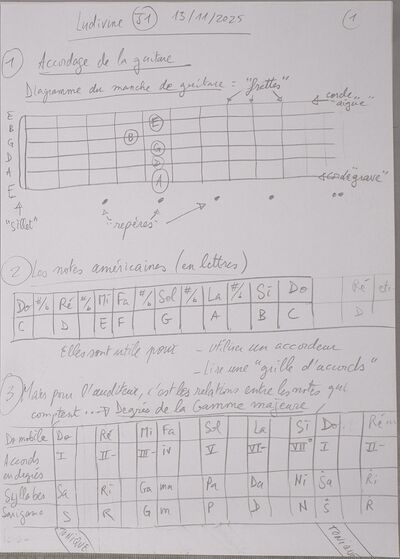 Ludivine J1 13/11/2025 1
1 Accordage de la guitare
Diagramme du manche de guitare : "frettes"
corde "aigüe"
E
B
G
D
A
E
E
B
G
D
A
corde "grave"
"Sillet"
"repères"
2 Les notes américaines (en lettres)
Do #/b Ré #/b Mi Fa #/b Sol #/b La #/b Si Do Ré etc
C D E F G A B C D
Elles sont utile pour - utiliser un accordeur
- Lire une "grille d'accords"
3 Mais pour l'auditeur, c'est les relations entre les notes qui
comptent ...→ Degrés de la Gamme majeure
Do mobile Do Ré Mi Fa Sol La Si Do Ré
Accords en degrés I II- III- iv V VI- VII° I II-
Syllabes Sa Ri Ga ma Pa Da Ni Ṡa Ṙi
Sargam S R G m P D N Ṡ R
TONIQUE TONIQUE